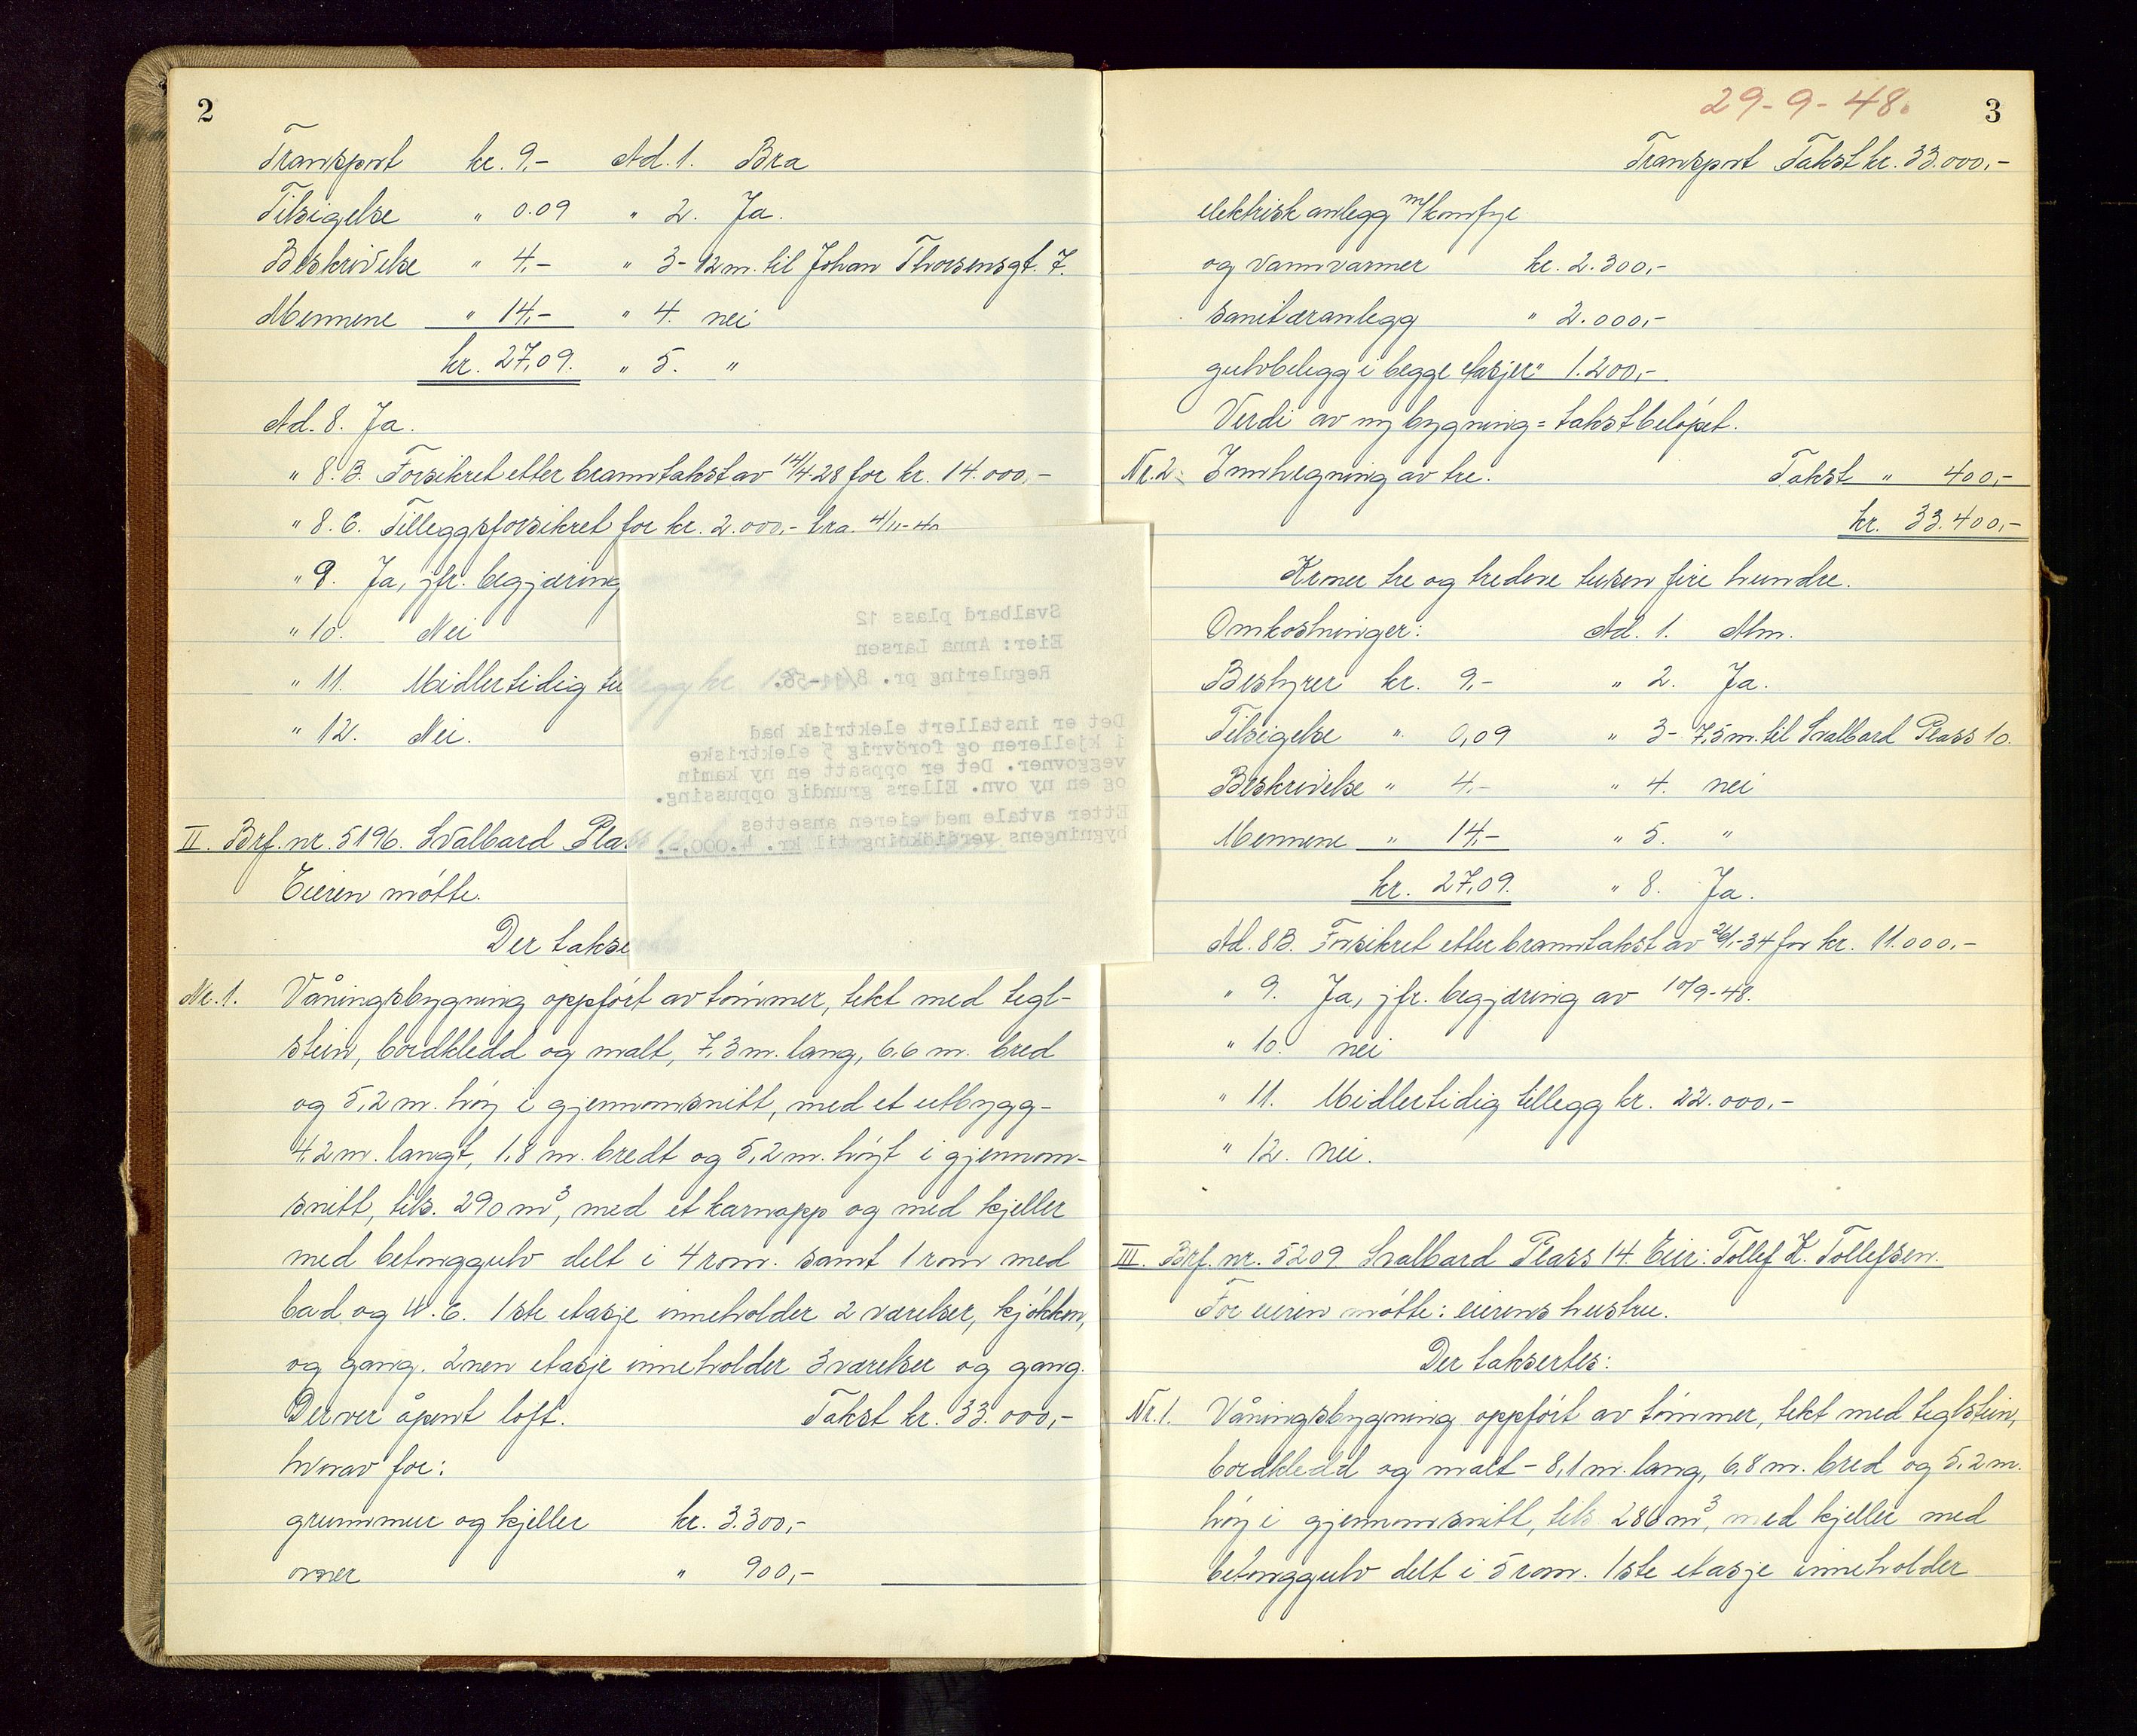 2
Transport kr. 9,- Ad. 1. Bra
Tilsigelse " 0.09 " 2. Ja.
Beskrivelse " 4,- " 3- 12 m. til Johan Thorsensgt. 7.
Mennene " 14,- " 4. nei
kr. 27,09. " 5. "
Ad. 8. Ja.
" 8.B. Forsikret etter branntakst av 14/4-28 for kr. 14.000,-
" 8.C. Tilleggsforsikret for kr. 2.000,- bra. 4/11-40
" 9. Ja, jfr. begjæring
" 10. Nei
" 11. Midlertidig
" 12. Nei.
II. Brf. nr. 5196. Svalbard Pla
Eieren møtte.
Der takse
Nr. 1. Våningsbygning oppført av tømmer, tekt med tegl-
stein, bordkledd og malt, 7.3 m. lang, 6.6 m. bred
og 5,2 m. høy i gjennomsnitt, med et utbygg-
4.2 m. langt, 1.8 m. bredt og 5,2 m. høyt i gjennom-
snitt, tils. 290 m³, med et karnapp og med kjeller
med betonggulv delt i 4 rom. samt 1 rom med
bad og W.C. 1ste etasje inneholder 2 værelser, kjøkken,
og gang. 2nen etasje inneholder 3 værelser og gang.
Derver åpent loft. Takst kr. 33.000,-
hvorav for:
grunnmur og kjeller kr. 3.300,-
ovner " 900,-
Svalbard plass 12
Eier: Anna Larsen
Regulering pr. 8/11-58.
Det er installert elektrisk bad
i kjelleren og forøvrig 5 elektriske
veggovner. Det er oppsatt en ny kamin
og en ny ovn. Ellers grundig oppussing.
Etter avtale med eieren ansettes
bygningens verdiøkning til kr. 4.000,-.
29-9-48.
3
Transport Takst kr. 33.000,-
elektrisk anlegg m/komfyr
og vannvarmer kr. 2.300,-
sanitæranlegg " 2.000,-
gulvbelegg i begge etasjer " 1.200,-
Verdi av ny bygning = takstbeløpet.
Nr. 2. Innhegning av tre. Takst " 400,-
kr. 33.400,-
Kroner tre og tredeve tusen fire hundre.
Omkostninger: Ad. 1. Alm.
Bestyrer kr. 9,- " 2. Ja.
Tilsigelse " 0,09 " 3- 7,5 m. til Svalbard Plass 10.
Beskrivelse " 4,- " 4. nei
Mennene " 14,- " 5. "
kr. 27,09. " 8. Ja.
Ad. 8B. Forsikret etter branntakst av 26/1-34 for kr. 11.000,-
" 9. Ja, jfr. begjæring av 10/9-48.
" 10. nei
" 11. Midlertidig tillegg kr. 22.000,-
" 12. nei.
III. Brf. nr. 5209 Svalbard Plass 14. Eier: Tollef K. Tollefsen.
For eieren møtte: eierens hustru.
Der taksertes:
Nr. 1. Våningsbygning oppført av tømmer, tekt med teglstein,
bordkledd og malt - 8,1 m. lang, 6,8 m. bred og 5,2 m.
høy i gjennomsnitt, tils 286 m³, med kjeller med
betonggulv delt i 5 rom. 1ste etasje inneholder